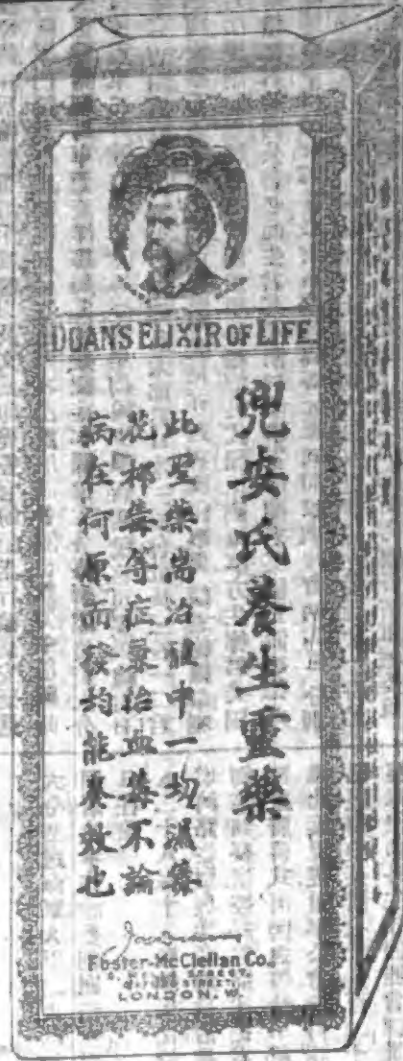 DOANS ELIXIR OF LIFE.
兜安氏養生靈藥
此聖藥耑治體中一切濕毒
花柳毒等症兼治血毒不論
病在何原而發均能奏效也
Foster-McClellan Co.
OXFORD STREET,
LONDON, W.